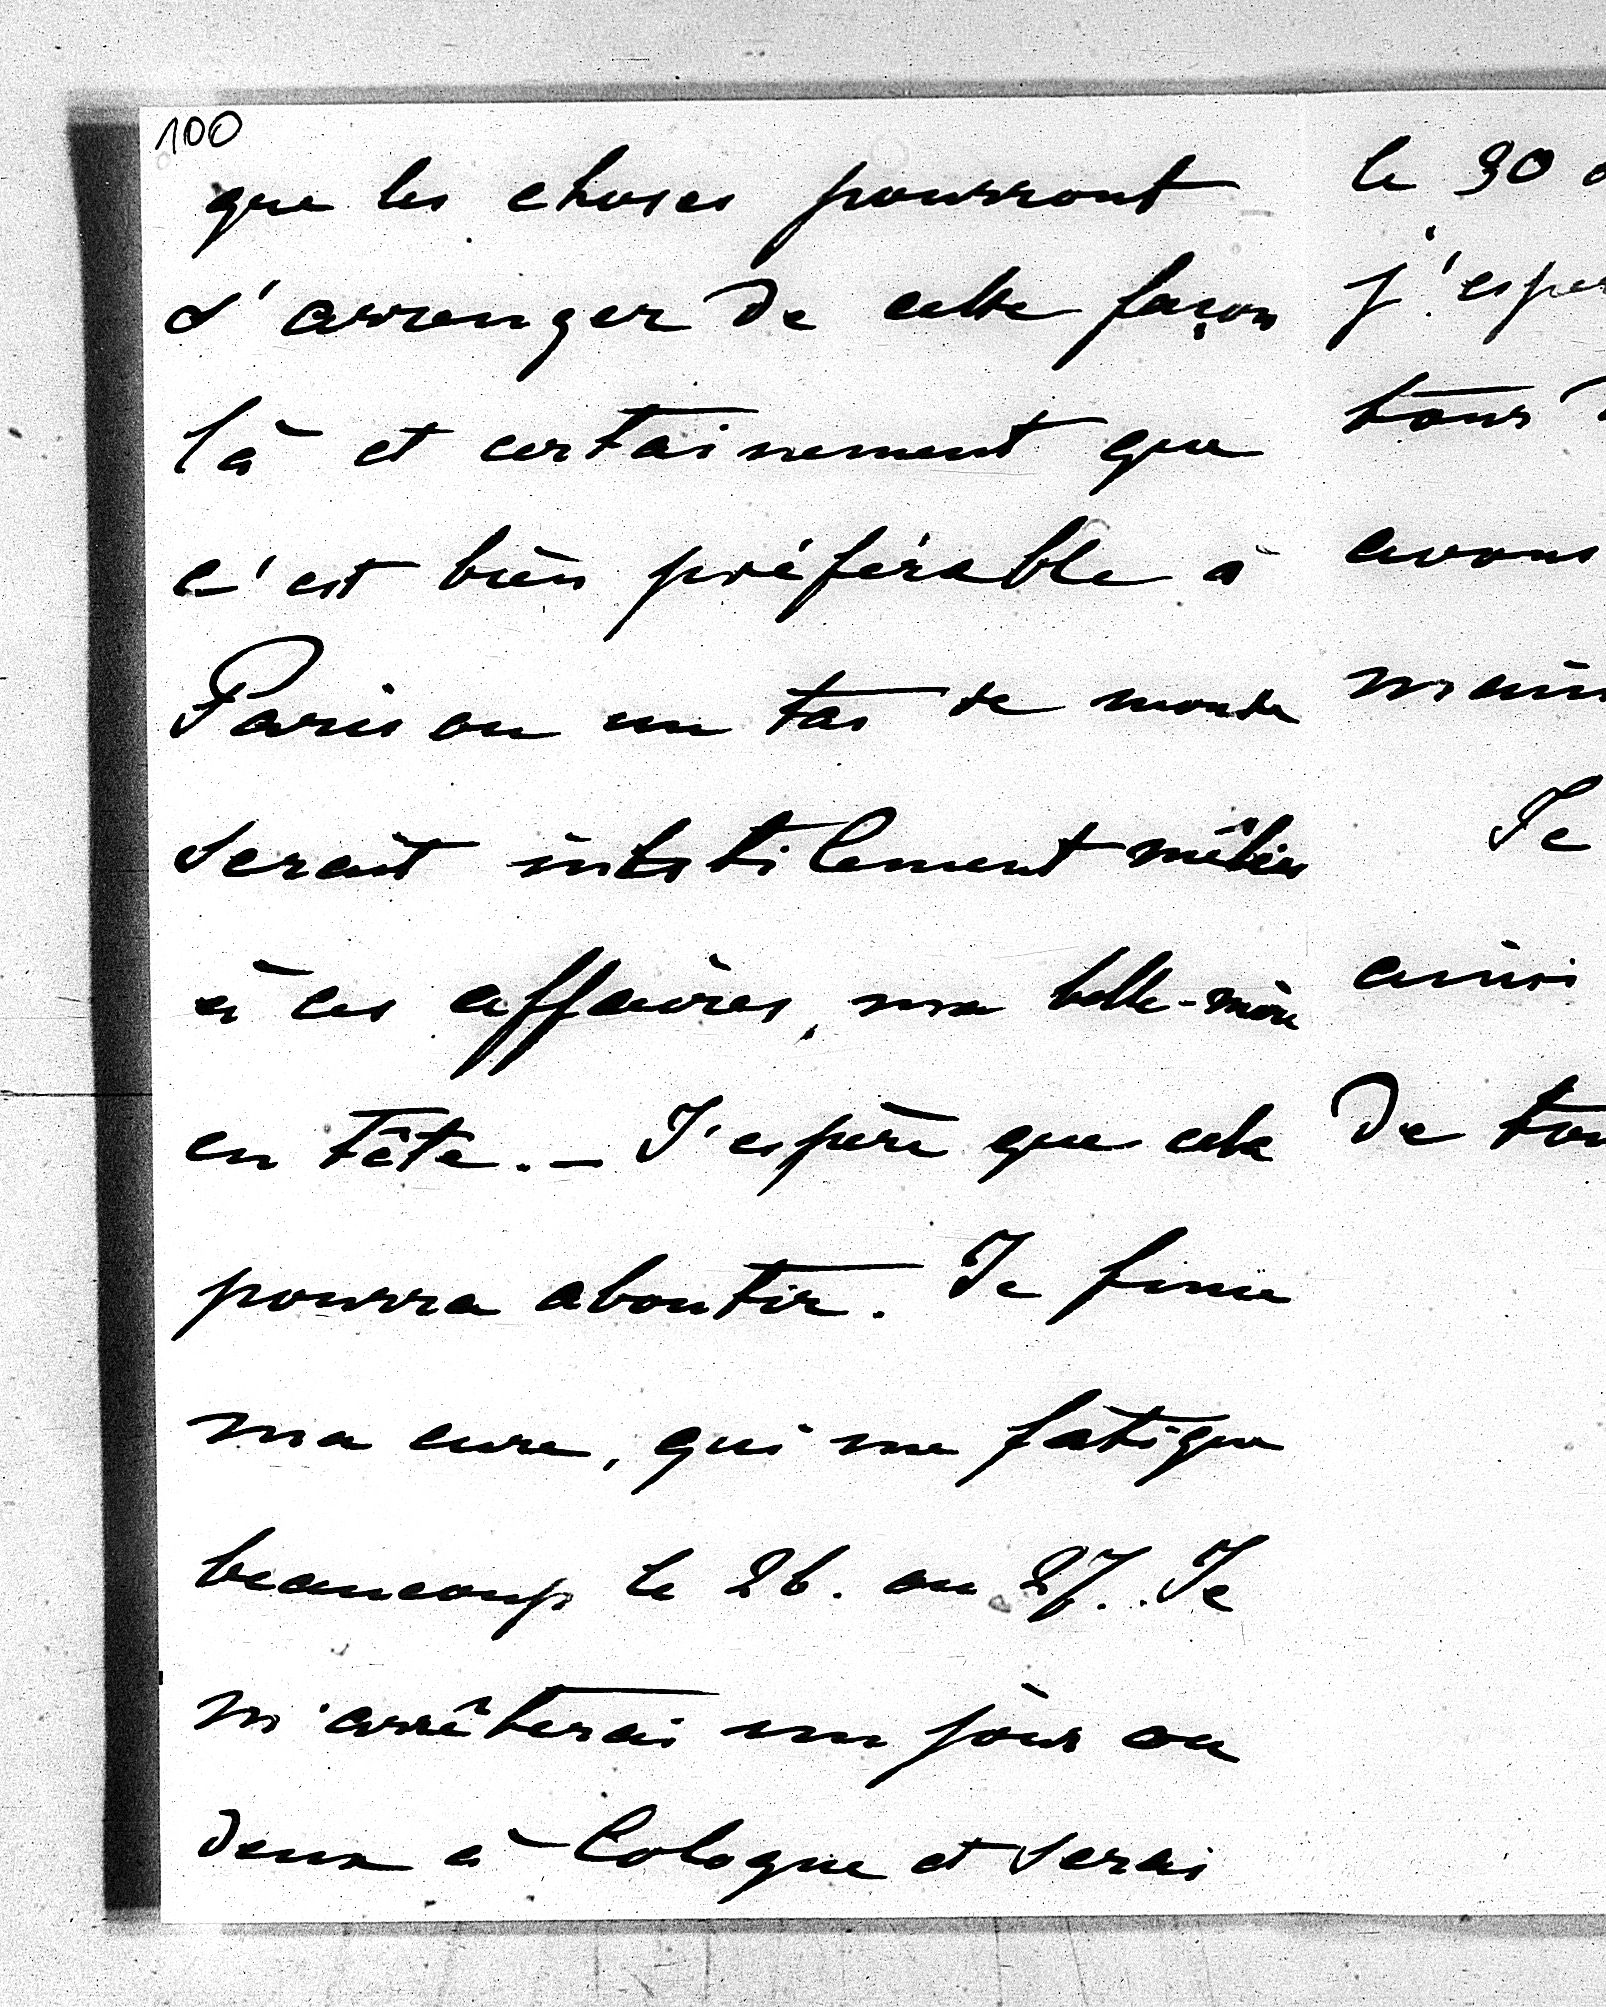 100
que les choses pourront
s'arranger de cette façon
là et certainement que
c'est bien préférable à
Paris ou un tas de monde
serait inutilement mêlés
à ces affaires, ma belle-mère
en tête. — J'espère que cela
pourra aboutir. Je finis
ma cure, qui me fatigue
beaucoup le 26. ou 27. Je
m'arrêterai un jour ou
deux à Cologne et serai
le 30
j'esper
tour
avons
main
Je
ainsi
de tou